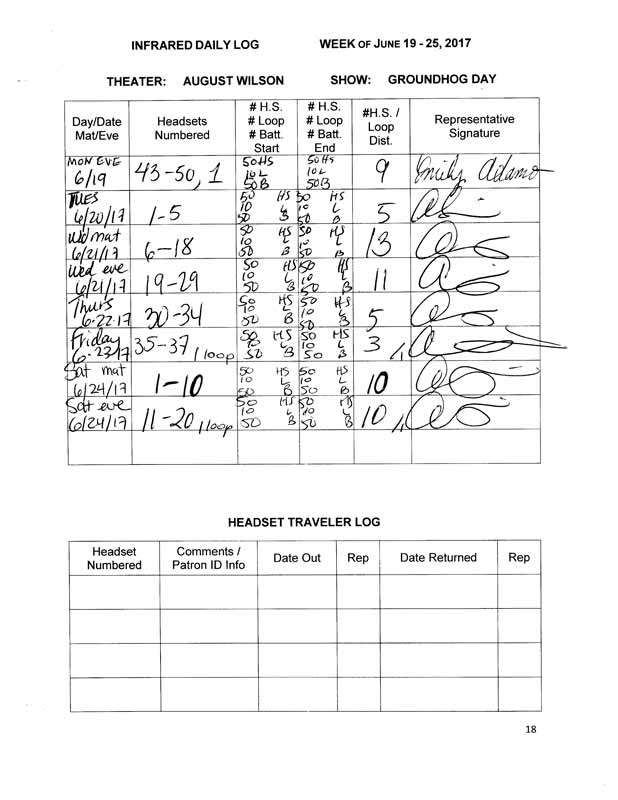 INFRARED DAILY LOG WEEK OF JUNE 19 - 25, 2017
THEATER: AUGUST WILSON SHOW: GROUNDHOG DAY
Day/Date Mat/Eve Headsets Numbered # H.S. # Loop # Batt. Start # H.S. # Loop # Batt. End #H.S. / Loop Dist. Representative Signature
MON EVE 6/19 43-50, 1 50HS 10L 50B 50HS 10L 50B 9 Emily Adamo
TUES 6/20/17 1-5 50 HS 10 L 50 B 50 HS 10 L 50 B 5
Wed mat 6/21/17 6-18 50 HS 10 L 50 B 50 HS 10 L 50 B 13
Wed eve 6/21/17 19-29 50 HS 10 L 50 B 50 HS 10 L 50 B 11
Thurs 6.22.17 30-34 50 HS 10 L 50 B 50 HS 10 L 50 B 5
Friday 6.23/17 35-37, 1 loop 50 HS 10 L 50 B 50 HS 10 L 50 B 3, 1L
Sat mat 6/24/17 1-10 50 HS 10 L 50 B 50 HS 10 L 50 B 10
Sat eve 6/24/17 11-20, 1 loop 50 HS 10 L 50 B 50 HS 10 L 50 B 10, 1L
HEADSET TRAVELER LOG
Headset Numbered Comments / Patron ID Info Date Out Rep Date Returned Rep
18